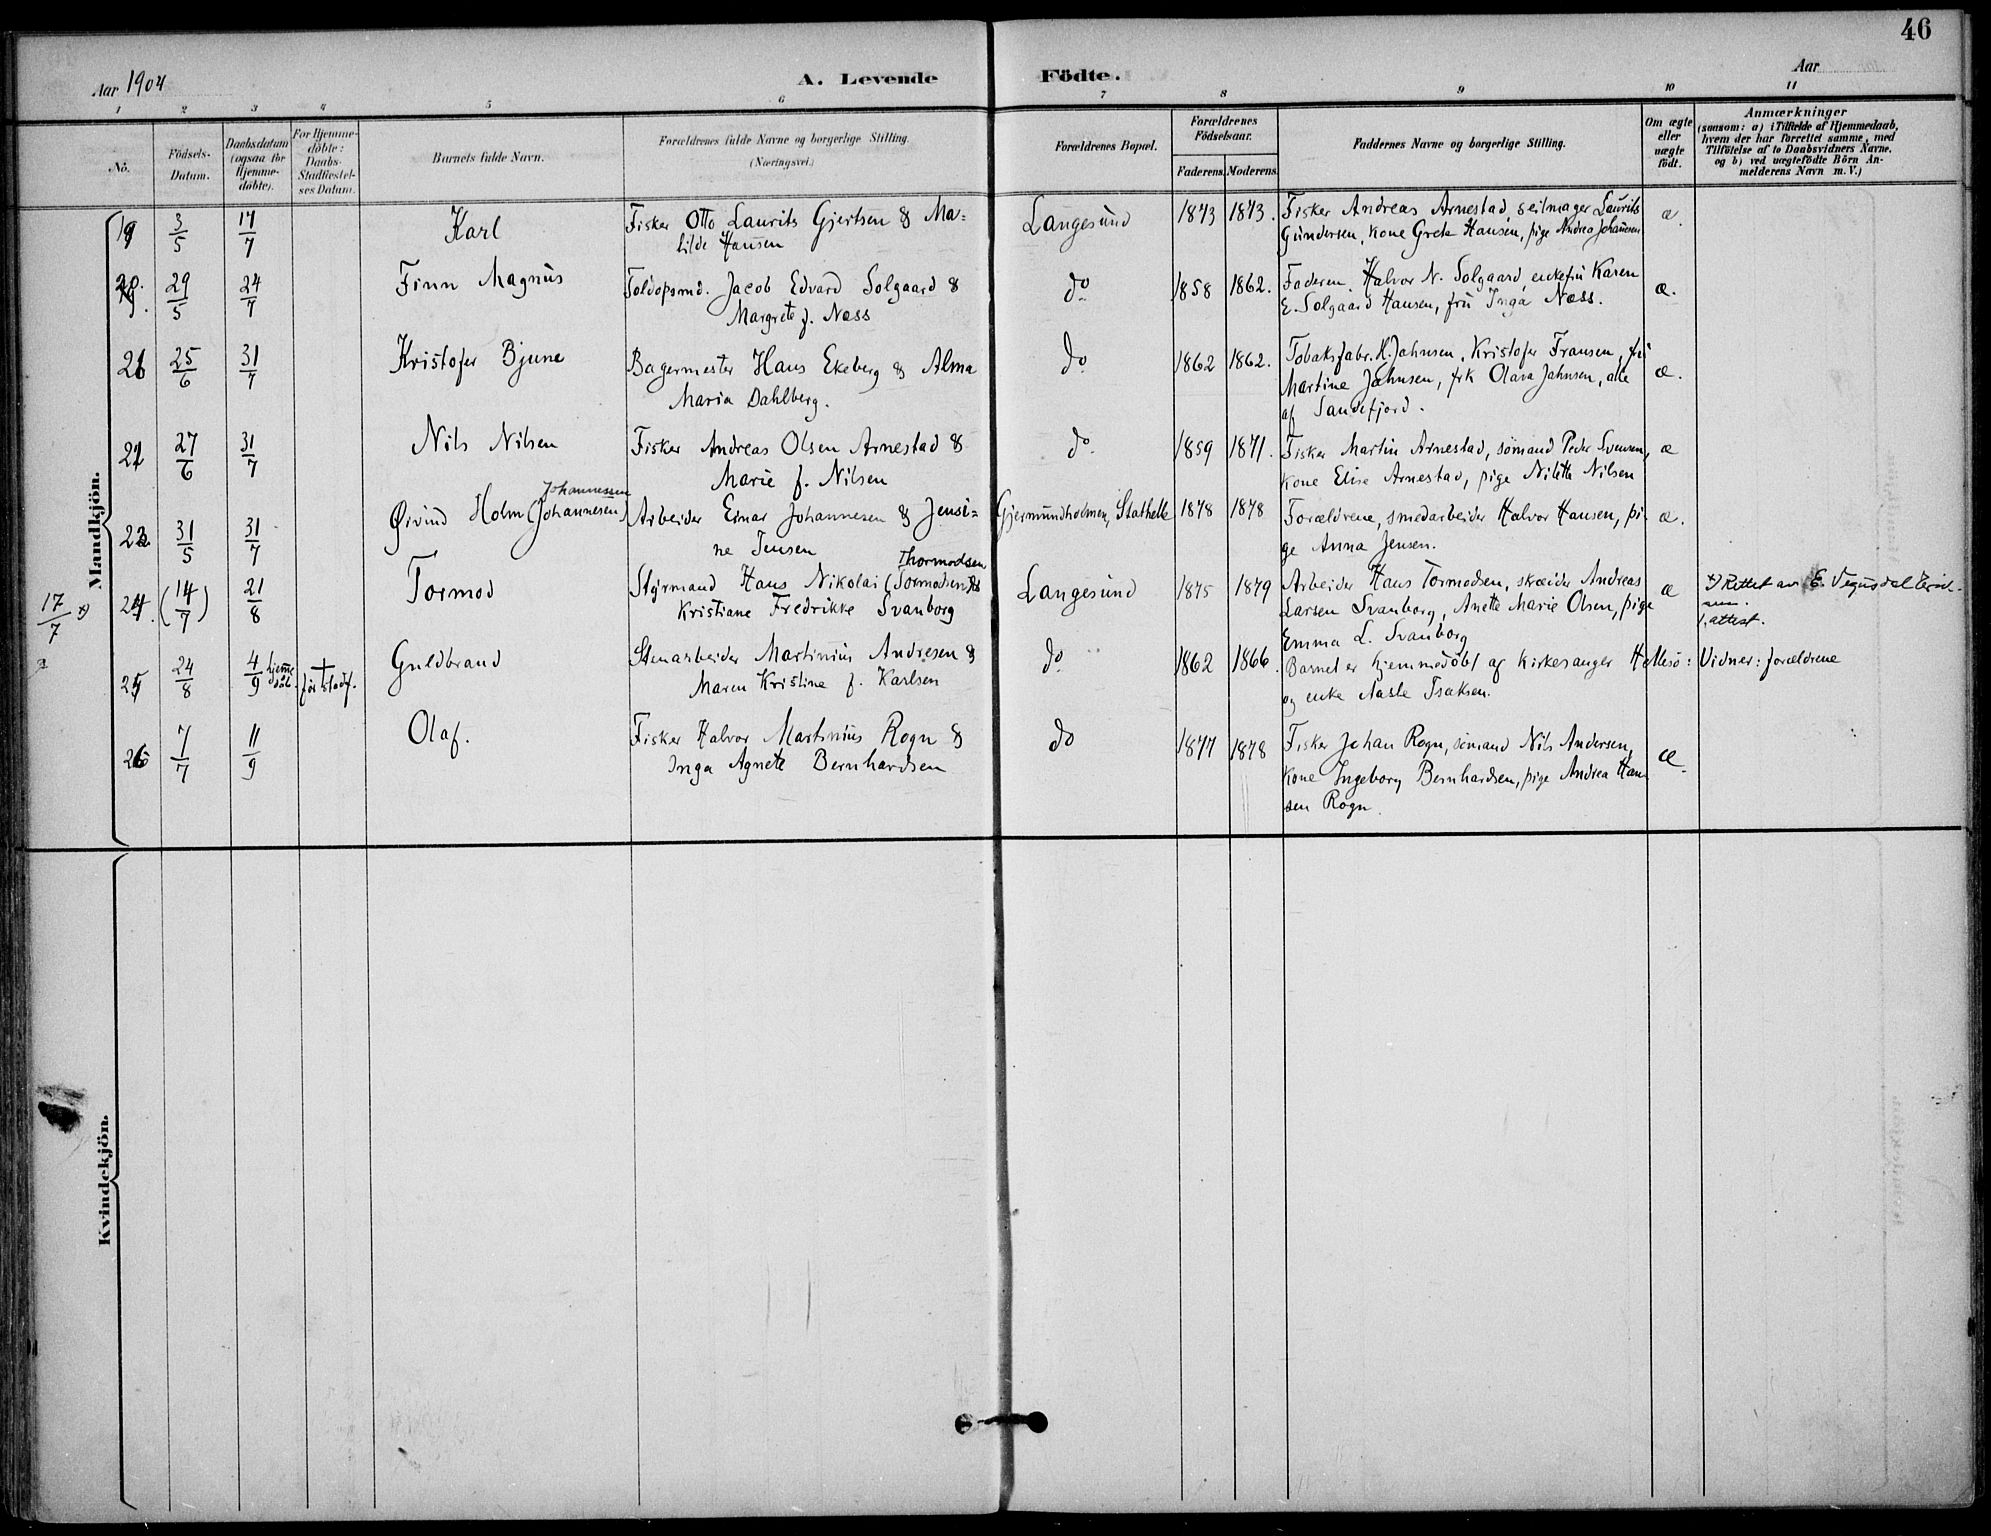 46
Aar 1904
A. Levende Födte.
Aar
1 2 3 4 5 6 7 8 9 10 11
No.
Födsels-
Datum.
Daabsdatum
(ogsaa for
Hjemme-
døbte).
For Hjemme-
døbte:
Daabs-
Stadfæstel-
ses Datum.
Barnets fulde Navn.
Forældrenes fulde Navne og borgerlige Stilling.
(Næringsvei.)
Forældrenes Bopæl.
Forældrenes
Födselsaar.
Faderens. Moderens.
Faddernes Navne og borgerlige Stilling.
Om ægte
eller
uægte
født.
Anmærkninger
(saasom: a) i Tilfælde af Hjemmedaab,
hvem der har forrettet samme, med
Tilføielse af to Daabsvidners Navne,
og b) ved uægtefödte Börn An-
melderens Navn m. V.)
Mandkjön.
19 3/5 17/7 Karl
Fisker Otto Laurits Gjertsen & Ma=
tilde Hansen
Langesund 1873 1873.
Fisker Andreas Arnestad, seilmager Laurits
Gundersen, kone Grete Hansen, pige Andrea Johansen
æ.
20. 29/5 24/7 Finn Magnus
Toldopsmd. Jacob Edvard Solgaard &
Margrete f. Næss
do 1858 1862.
Faderen, Halvor N. Solgaard, enkefru Karen
E. Solgaard Hansen, fru Inga Næss.
æ.
21 25/6 31/7 Kristofer Bjune
Bagermester Hans Ekeberg & Alma
Maria Dahlberg.
do 1862 1862.
Tobaksfabr. H. Jahnsen, Kristofer Fransen, fru
Martine Jahnsen, frk Olava Jahnsen, alle
af Sandefjord.
æ.
22 27/6 31/7 Nils Nilsen
Fisker Andreas Olsen Arnestad &
Marie f. Nilsen
do 1859 1871.
Fisker Martin Arnestad, sømand Peder Svensen,
kone Elise Arnestad, pige Nilette Nilsen
æ
23 31/5 31/7
Johannessen
Øivind Holm (Johannesen)
Arbeider Einar Johannesen & Jensi=
ne Jensen
Gjermundholmen, Stathelle 1878 1878
Forældrene, smedarbeider Halvor Hansen, pi-
ge Anna Jensen.
æ.
17/7 x)
24. (14/7) 21/8 Tormod
Thormodsen
Styrmand Hans Nikolai (Tormodsen) &
Kristiane Fredrikke Svanborg
Langesund 1875 1879
Arbeider Hans Tormodsen, skræder Andreas
Larsen Svanborg, Anette Marie Olsen, pige
Emma L. Svanborg
æ
x) Rettet av E. Vegusdal Erik-
sen.
f. attest.
25 24/8 4/9 hjemme
døbt. + før stadf.
Guldbrand
Stenarbeider Martinius Andresen &
Maren Kristine f. Karlsen
do 1862 1866.
Barnet er hjemmedøbt af kirkesanger Hellesø:
og enke Aasle Isaksen.
Vidner: forældrene
26 7/7 11/9 Olaf.
Fisker Halvor Martinius Rogn &
Inga Agnete Bernhardsen
do 1877 1878
Fisker Johan Rogn, sømand Nils Andersen,
kone Ingeborg Bernhardsen, pige Andrea Han-
sen Rogn.
æ.
Kvindekjön.